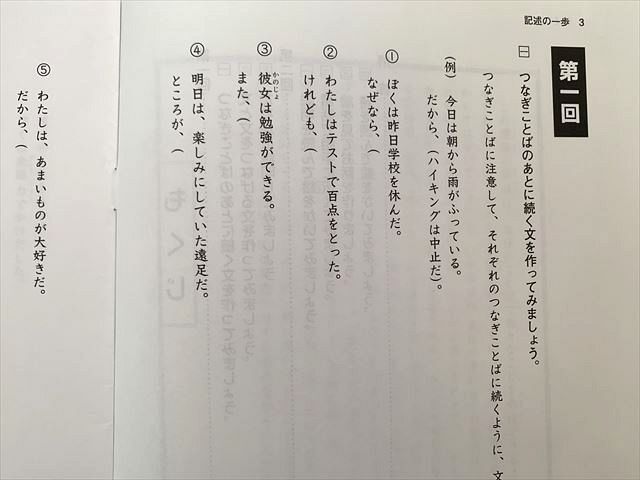 記述の一歩 3
第一回
一 つなぎことばのあとに続く文を作ってみましょう。
つなぎことばに注意して、それぞれのつなぎことばに続くように、文
(例) 今日は朝から雨がふっている。
だから、(ハイキングは中止だ)。
① ぼくは昨日学校を休んだ。
なぜなら、(
② わたしはテストで百点をとった。
けれども、(
③ 彼女は勉強ができる。
かのじょ
また、(
④ 明日は、楽しみにしていた遠足だ。
ところが、(
⑤ わたしは、あまいものが大好きだ。
だから、(
もくじ